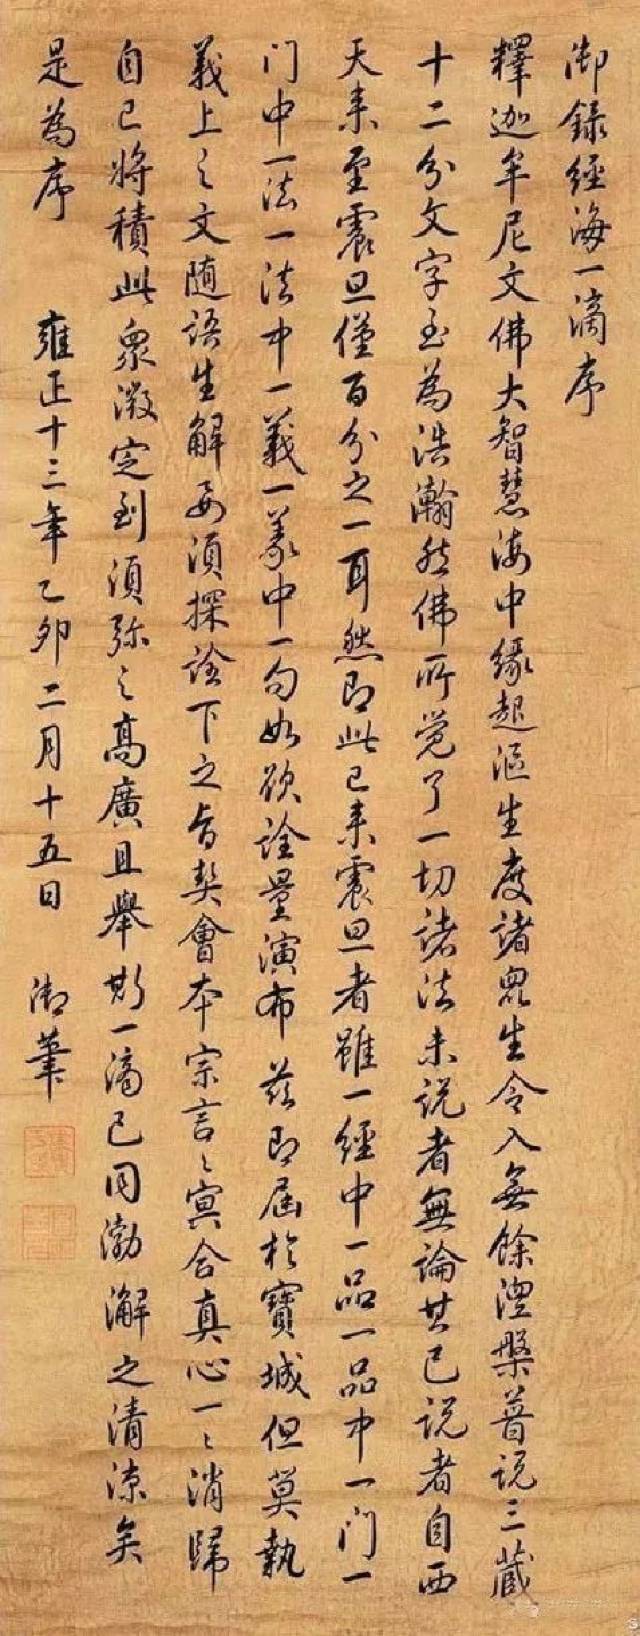 御錄經海一滴序
釋迦牟尼文佛大智慧海中緣起漚生度諸眾生令入無餘涅槃普說三藏
十二分文字至為浩瀚然佛所覺了一切諸法未說者無論其已說者自西
天來至震旦僅百分之一耳然即此已來震旦者雖一經中一品一品中一门一
门中一法一法中一義一義中一句如欲詮量演布茲即屆於寶城但莫執
義上之文随語生解要須探詮下之旨契會本宗言〻冥合真心一〻消歸
自己將積此眾激定到須弥之高廣且舉斯一滴已同渤澥之清涼矣
是為序
雍正十三年乙卯二月十五日
御筆